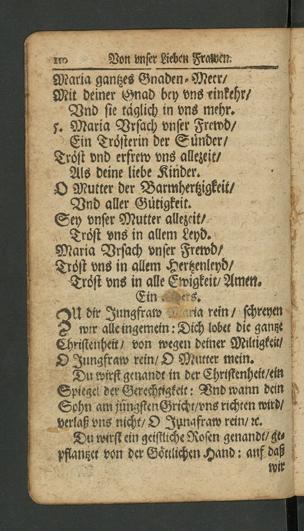 110 Von vnser Lieben Frawen.
Maria gantzes Gnaden-Meer/
Mit deiner Gnad bey vns einkehr/
Vnd sie täglich in vns mehr.
5. Maria Vrsach vnser Frewd/
Ein Trösterin der Sünder/
Tröst vnd erfrew vns allezeit/
Als deine liebe Kinder.
O Mutter der Barmhertzigkeit/
Vnd aller Gütigkeit.
Sey vnser Mutter allezeit/
Tröst vns in allem Leyd.
Maria Vrsach vnser Frewd/
Tröst vns in allem Hertzenleyd/
Tröst vns in alle Ewigkeit/ Amen.
Ein
ZU dir Jungfraw Maria rein/ schreyen
wir alle ingemein: Dich lobet die gantze
Christenheit/ von wegen deiner Miltigkeit/
O Jungfraw rein/ O Mutter mein.
Du wirst genandt in der Christenheit/ ein
Spiegel der Gerechtigkeit: Vnd wann dein
Sohn am jüngsten Gricht/ vns richten wird/
verlaß vns nicht/ O Jungfraw rein/ ꝛc.
Du wirst ein geistliche Rosen genandt/ ge-
pflantzet von der Göttlichen Hand: auf daß
wir